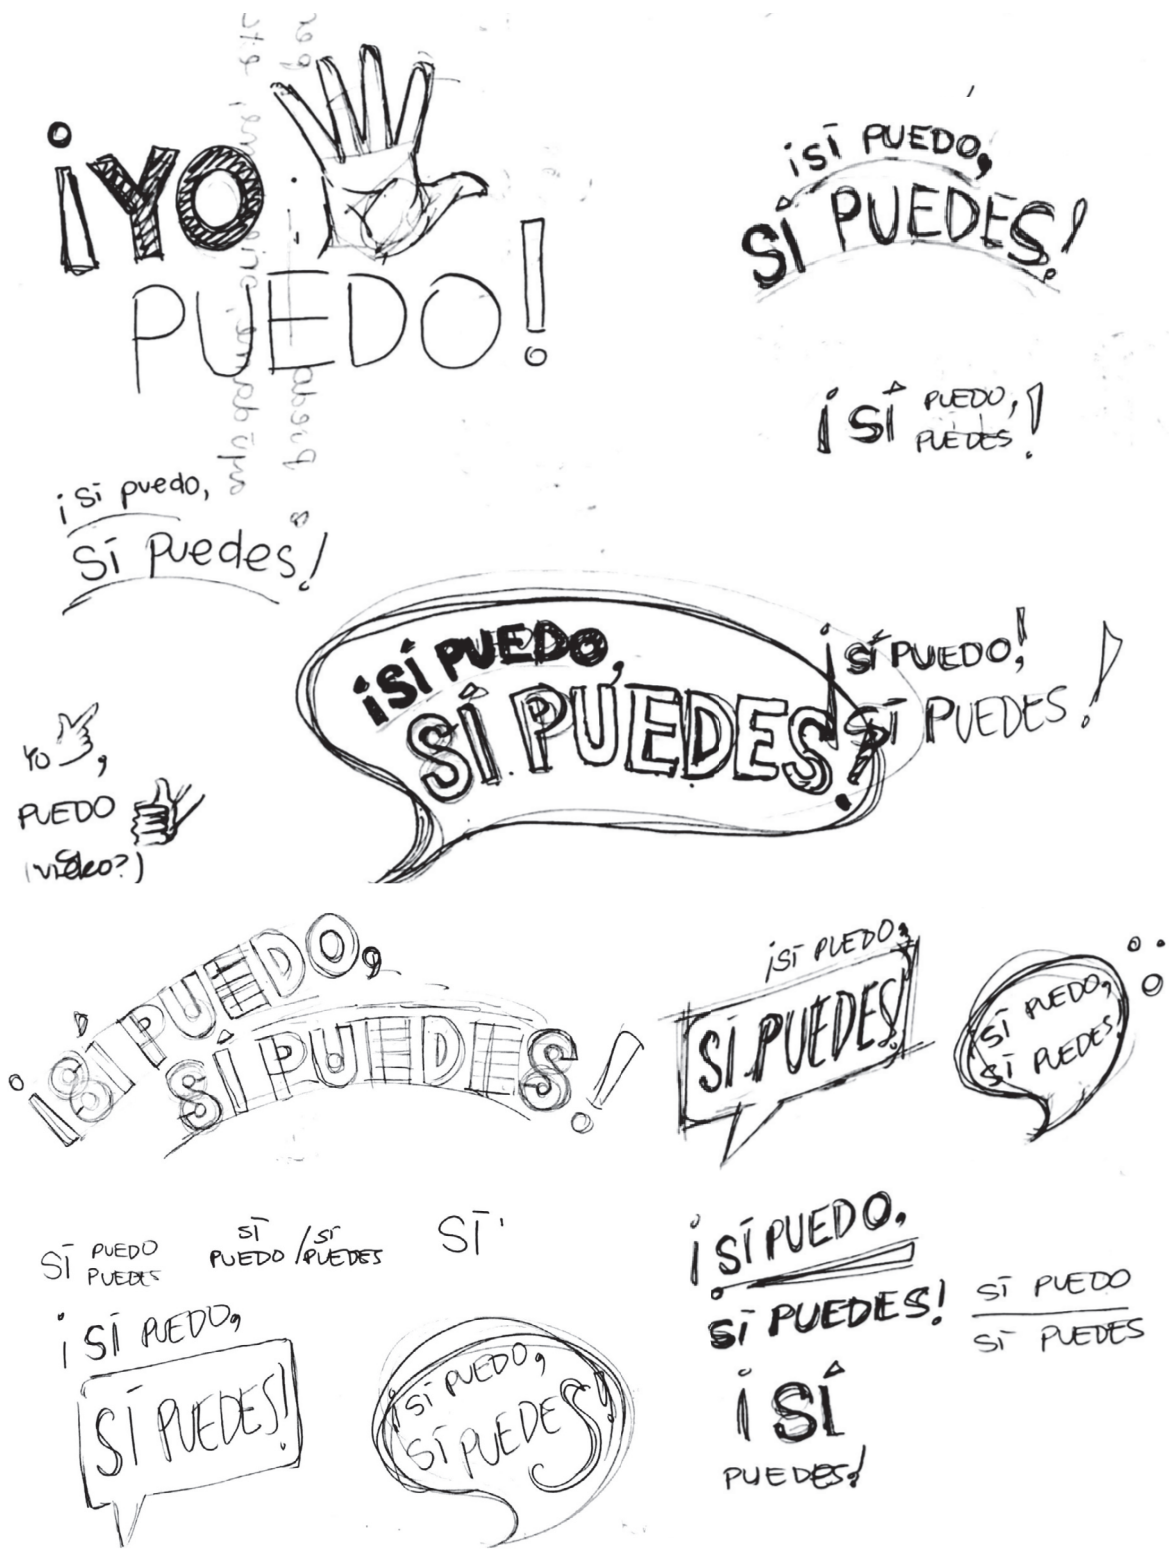 ¡YO
PUEDO!
¡SÍ PUEDO,
SÍ PUEDES!
¡SÍ PUEDO,
PUEDES!
¡Sí puedo,
Sí Puedes!
¡SÍ PUEDO,
SÍ PUEDES!
¡SÍ PUEDO!
SÍ PUEDES!
YO ,
PUEDO
¡SÍ PUEDO,
SÍ PUEDES!
¡SÍ PUEDO,
SÍ PUEDES!
SÍ PUEDO,
SÍ PUEDES
SÍ PUEDO
PUEDES
SÍ
PUEDO / SÍ
PUEDES
SÍ
¡SÍ PUEDO,
SÍ PUEDES!
¡SÍ PUEDO,
SÍ PUEDES!
¡SÍ PUEDO,
SÍ PUEDES!
SÍ PUEDO
SÍ PUEDES
¡SÍ
PUEDES!